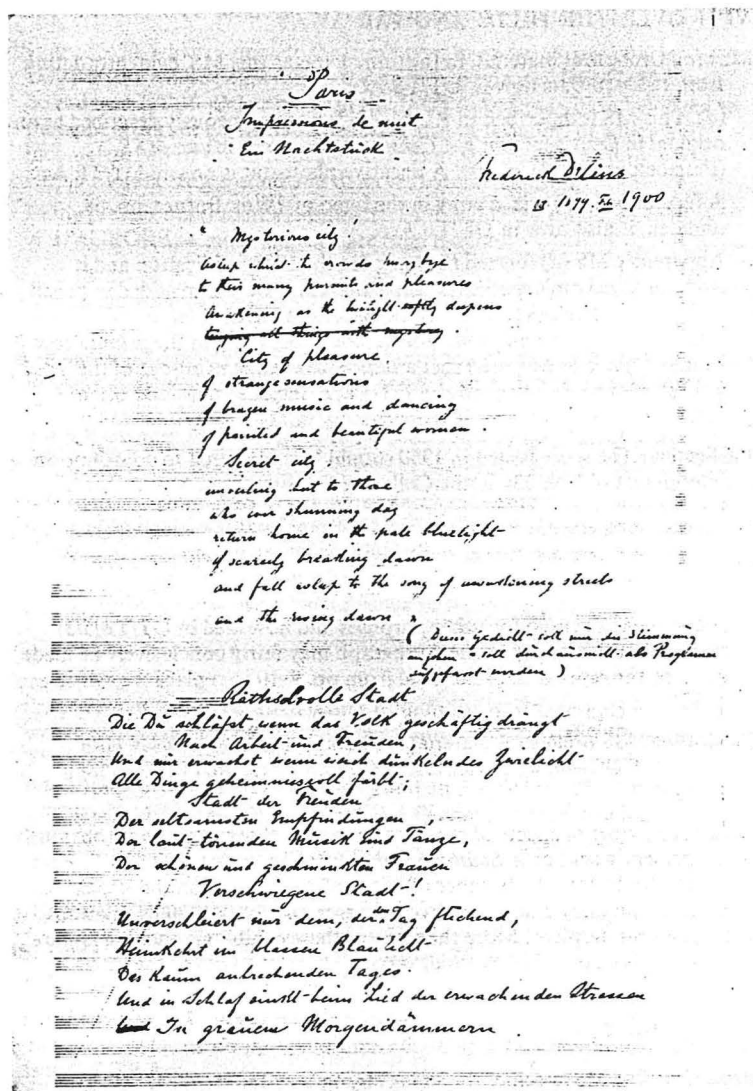 Paris
Impressions de nuit
"Ein Nachtstück"
Frederick Delius
1899. 1900
"Mysterious city!
asleep whilst the crowds hurry bye
to their many pursuits and pleasures
Awakening as the twilight softly deepens
tinging all things with mystery.
City of pleasure
of strange sensations
of brazen music and dancing
of painted and beautiful women.
Secret city
unveiling but to those
who ever shunning day
return home in the pale bluelight
of scarcely breaking dawn
and fall asleep to the song of awakening streets
and the rising dawn"
(Dieses Gedicht soll nur die Stimmung
angeben & soll durchaus nicht als Programm
aufgefasst werden)
Räthselvolle Stadt
Die Du schläfst wenn das Volk geschäftig drangt
Nach Arbeit und Freuden,
Und nur erwachst wenn weich dunkelndes Zwielicht
Alle Dinge geheimnissvoll färbt;
Stadt der Freuden
Der seltsamsten Empfindungen
Der laut-tönenden Musik und Tänze,
Der schönen und geschminkten Frauen
Verschwiegene Stadt-!
Unverschleiert nur dem, der den Tag fliehend,
Heimkehrt im blassen Blaulicht
Des Kaum anbrechenden Tages.
Und in Schlaf beim Lied der erwachenden Strassen
Und In grauem Morgendämmern